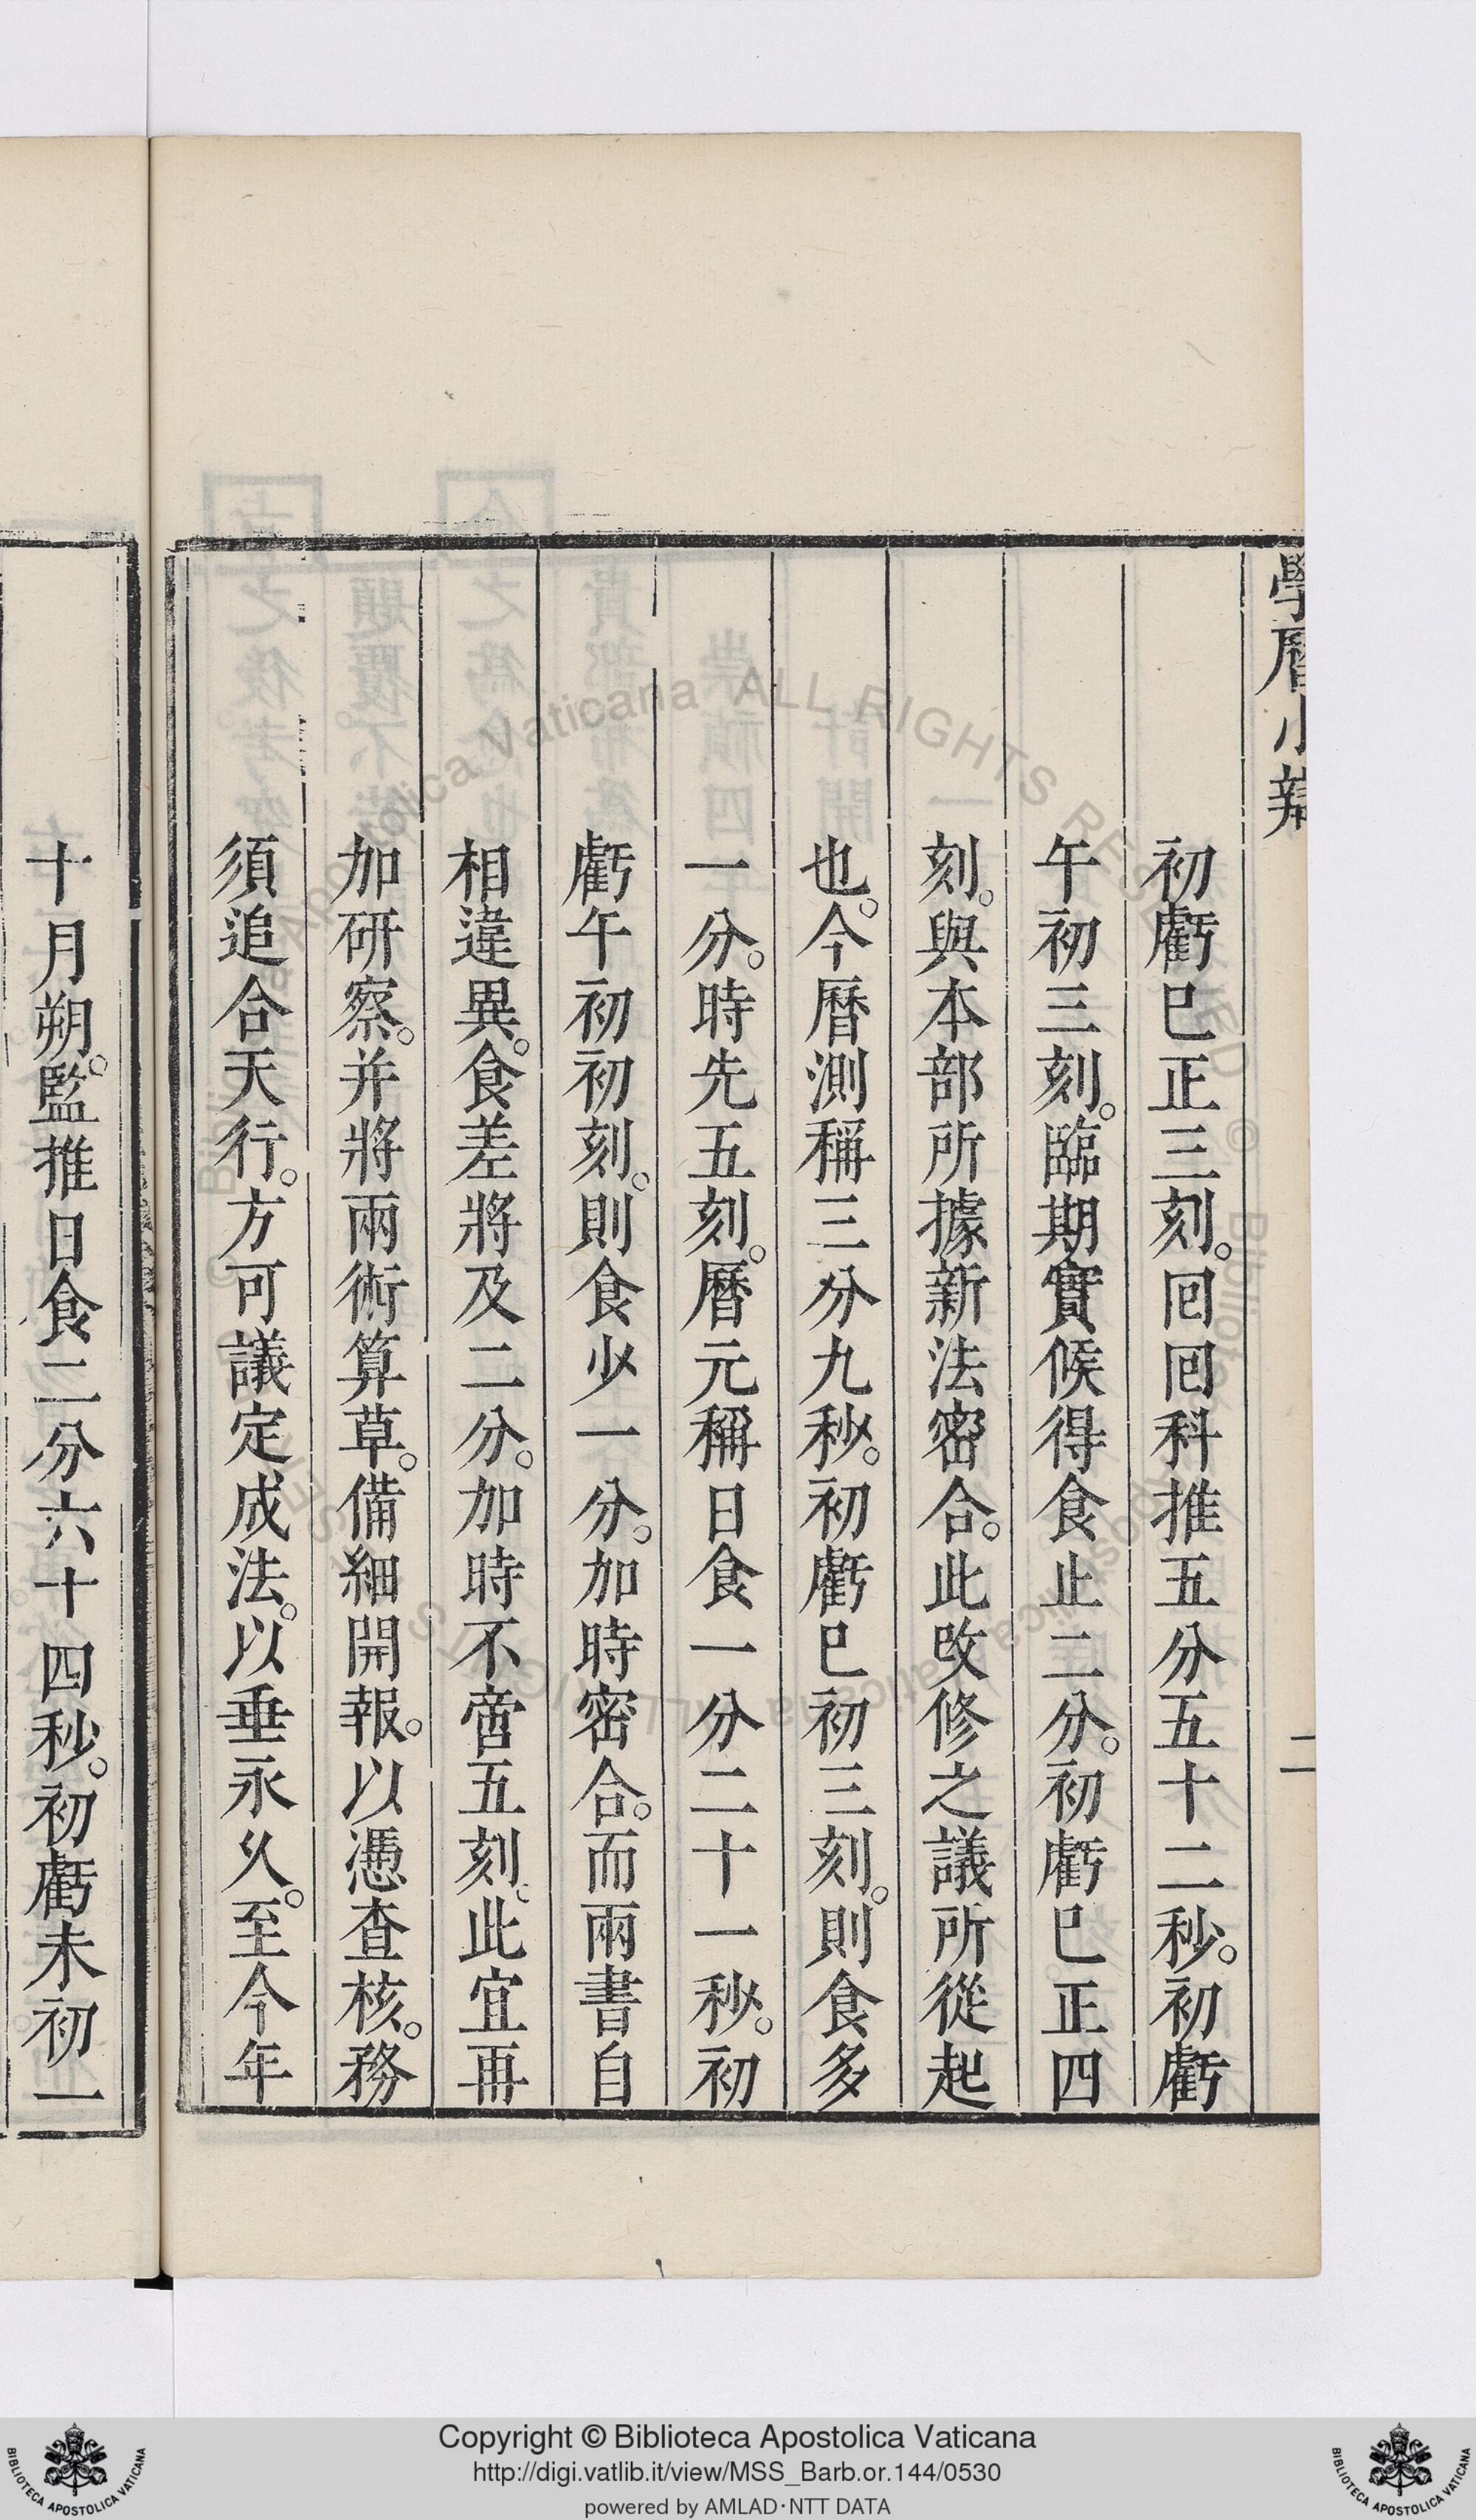 學曆小辯
二
初虧巳正三刻。回回科推五分五十二秒。初虧
午初三刻。臨期實候得食止二分。初虧巳正四
刻。與本部所據新法密合。此改修之議所從起
也。今曆測稱三分九秒。初虧巳初三刻。則食多
一分。時先五刻。曆元稱日食一分二十一秒。初
虧午初初刻。則食少一分。加時密合。而兩書自
相違異。食差將及二分。加時不啻五刻。此宜再
加研察。并將兩術算草。備細開報。以憑查核。務
須追合天行。方可議定成法。以垂永久。至今年
十月朔。監推日食二分六十四秒。初虧未初一
Copyright © Biblioteca Apostolica Vaticana
http://digi.vatlib.it/view/MSS_Barb.or.144/0530
powered by AMLAD·NTT DATA
BIBLIOTECA APOSTOLICA VATICANA
BIBLIOTECA APOSTOLICA VATICANA